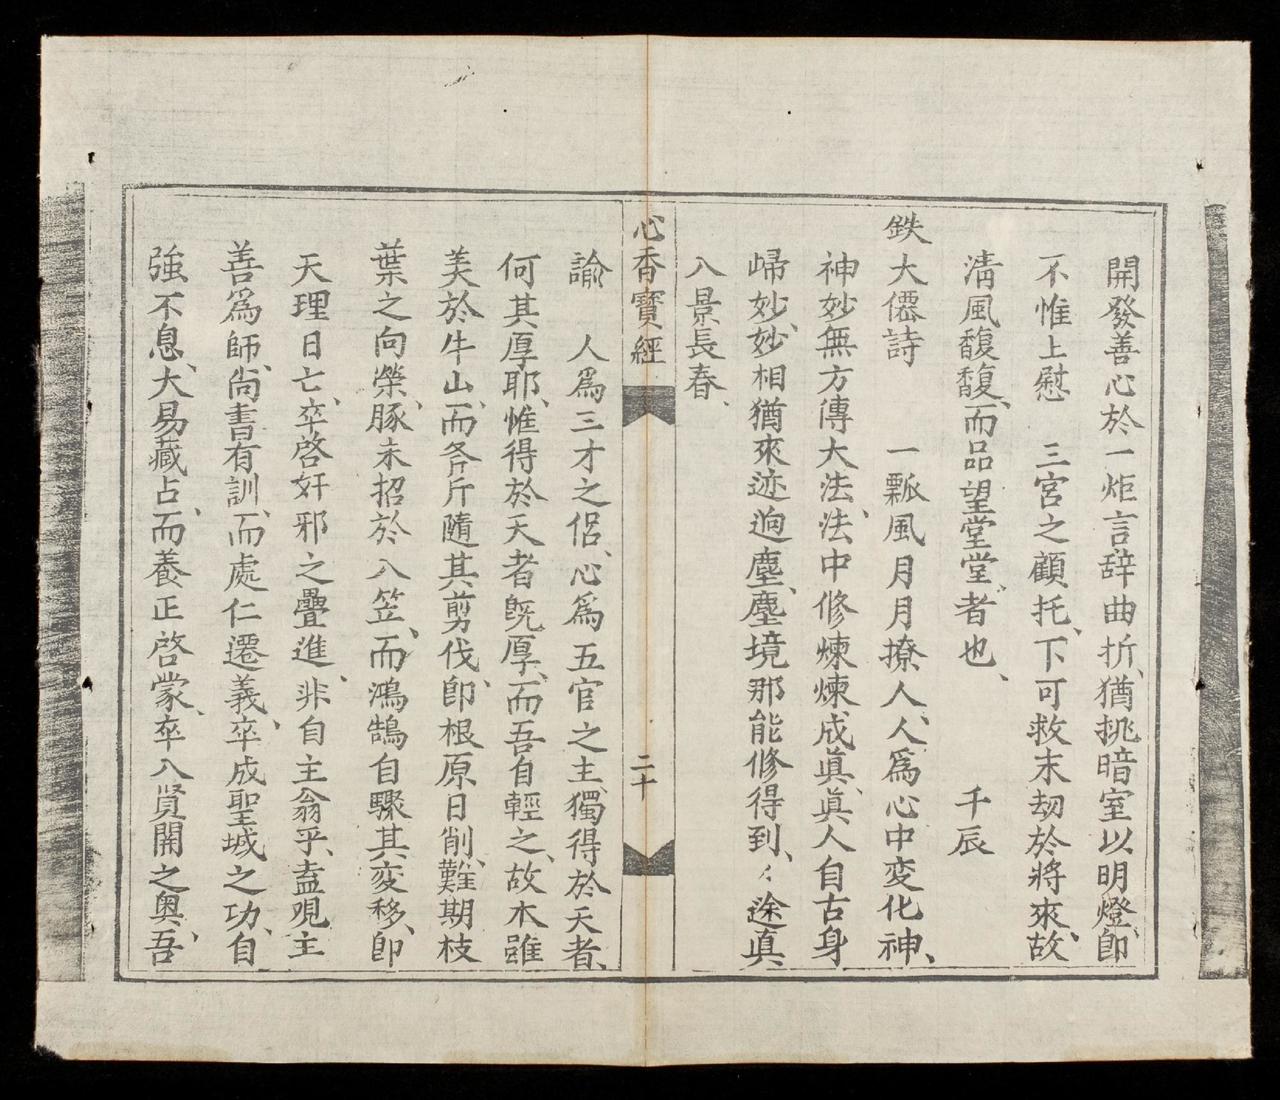 開發善心於一炬言辞曲折、猶挑暗室以明燈、即
不惟上慰　三宮之顧托、下可救末刼於將來、故
清風馥馥、而品望堂堂者也、　　千辰
鉄大僊詩　　一瓢風月月撩人、人爲心中変化神、
神妙無方傳大法、法中修煉煉成眞、眞人自古身
歸妙、妙相猶來迹逈塵、塵境那能修得到、々途眞
八景長春、
心香寶經　二十
諭　人爲三才之侶、心爲五官之主、獨得於天者、
何其厚耶、惟得於天者旣厚、而吾自輕之、故木雖
美於牛山、而斧斤隨其剪伐、即根原日削、難期枝
葉之向榮、豚未招於入笠、而鴻鵠自驟其変移、即
天理日亡、卒啓奸邪之疊進、非自主翁乎、盍覌主
善爲師、尙書有訓、而處仁遷義、卒成聖域之功、自
強不息、大易藏占、而養正啓蒙、卒入賢関之奥、吾